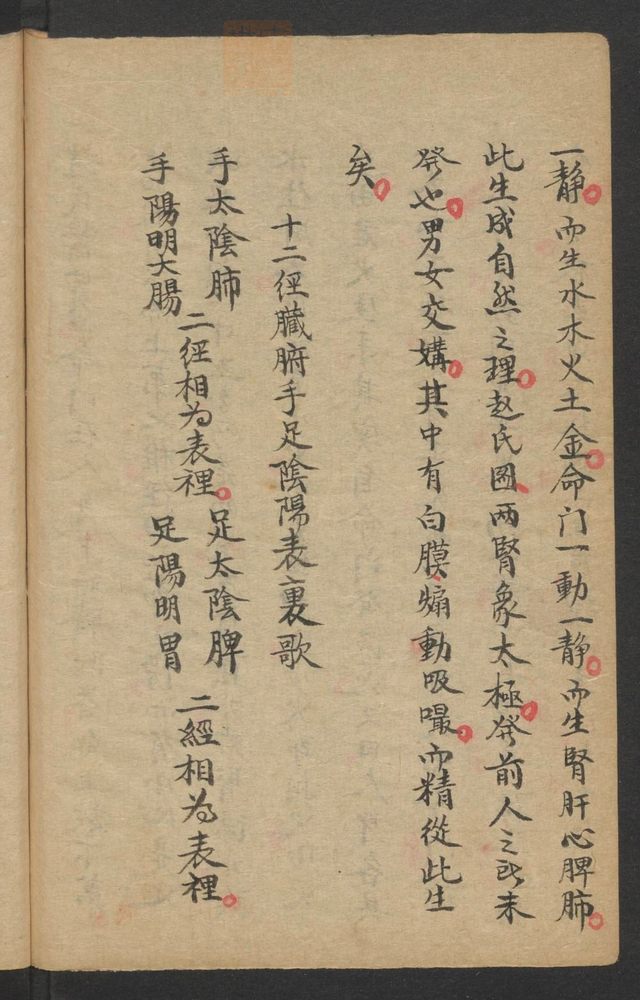 一静而生水木火土金命门一動一静而生腎肝心脾肺
此生成自然之理赵氏图两腎象太極發前人之所未
發也男女交媾其中有白膜煽動吸嘬而精從此生
矣
十二徑臟腑手足陰陽表裏歌
手太陰肺
手陽明大腸
二徑相为表裡
足太陰脾
足陽明胃
二經相为表裡